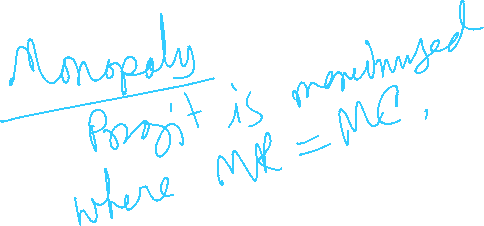 Monopoly
Profit is maximized
where MR = MC.